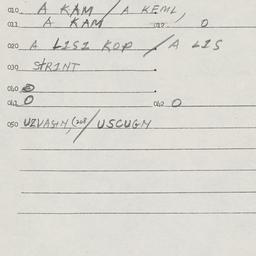 010 A KAM / A KEML,
011 A KAM 012 0
020 A LISI KOP / A LIS
030 STRINT
040 0
041 0 042 0
050 UZVASIN, (208) / USCUGN